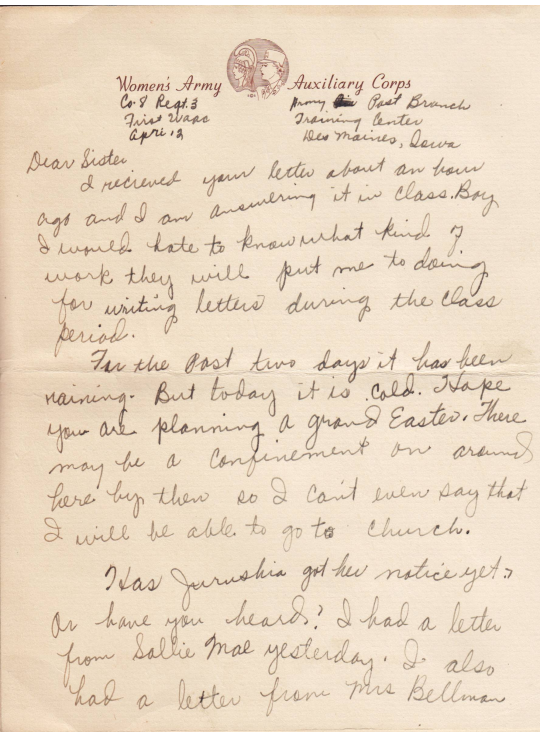 Women's Army Auxiliary Corps
Co. 8 Regt. 3 Army Post Branch
First Waac Training Center
April 12 Des Moines, Iowa
Dear Sister
I recieved your letter about an hour
ago and I am answering it in class. Boy
I would hate to know what kind of
work they will put me to doing
for writing letters during the class
period.
For the past two days it has been
raining. But today it is cold. Hope
you are planning a grand Easter. There
may be a confinement on around
here by then so I can't even say that
I will be able to go to church.
Has Jurushia got her notice yet?
Or have you heard? I had a letter
from Sallie Mae yesterday. I also
had a letter from Mrs Bellman